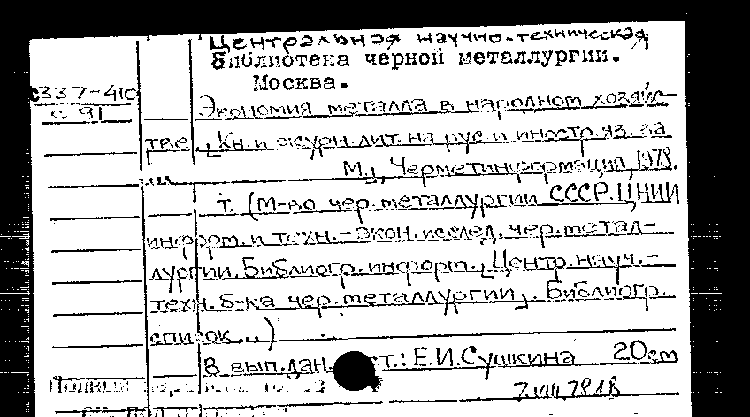 Центральная научно-техническая
библиотека черной металлургии.
Москва.
с337-410
с 91
Экономия металла в народном хозяйс-
тве. Кн. и журн. лит. на рус. и иностр. яз. за
... М., Черметинформация, 1978.
т. (М-во чер. металлургии СССР. ЦНИИ
информ. и техн.-экон. исслед. чер. метал-
лургии. Библиогр. информ. Центр. науч.-
техн. б-ка чер. металлургии. Библиогр.
список ..)
В вып. дан. ст.: Е.И. Сушкина 20см